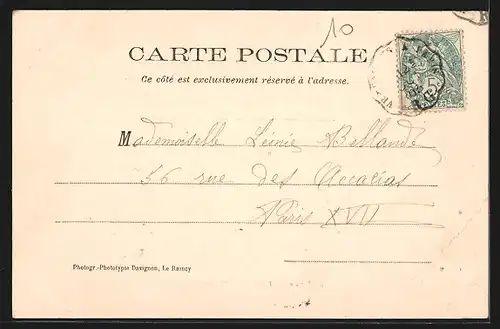 10
CARTE POSTALE
Ce côté est exclusivement réservé à l'adresse.
Mademoiselle Léonie Bellande
56 rue des Accacias
Paris XVII
Photogr.-Phototypie Davignon, Le Raincy